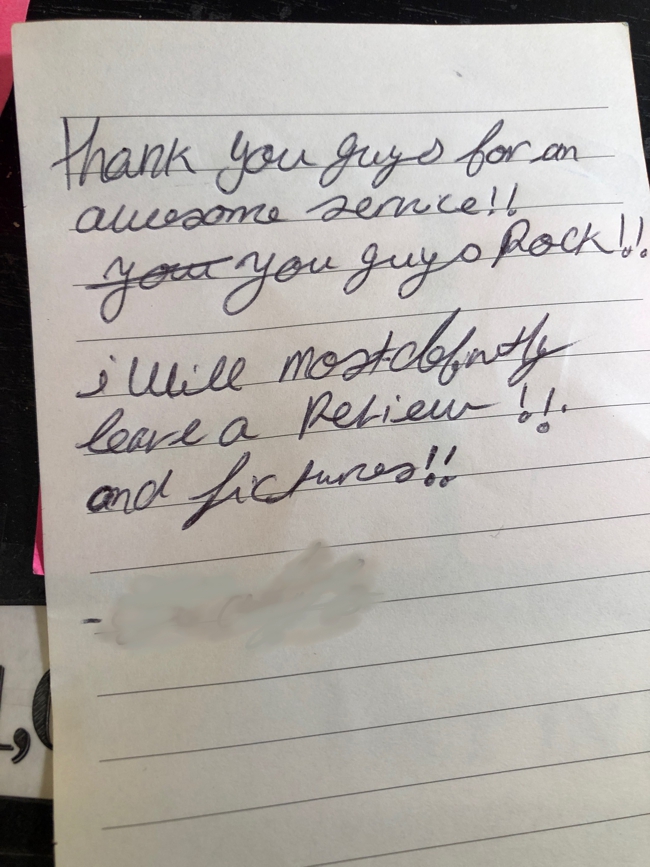 thank you guys for an
awesome service!!
your you guys Rock!!
i Will most definitly
leave a Review !!.
and pictures!!
-